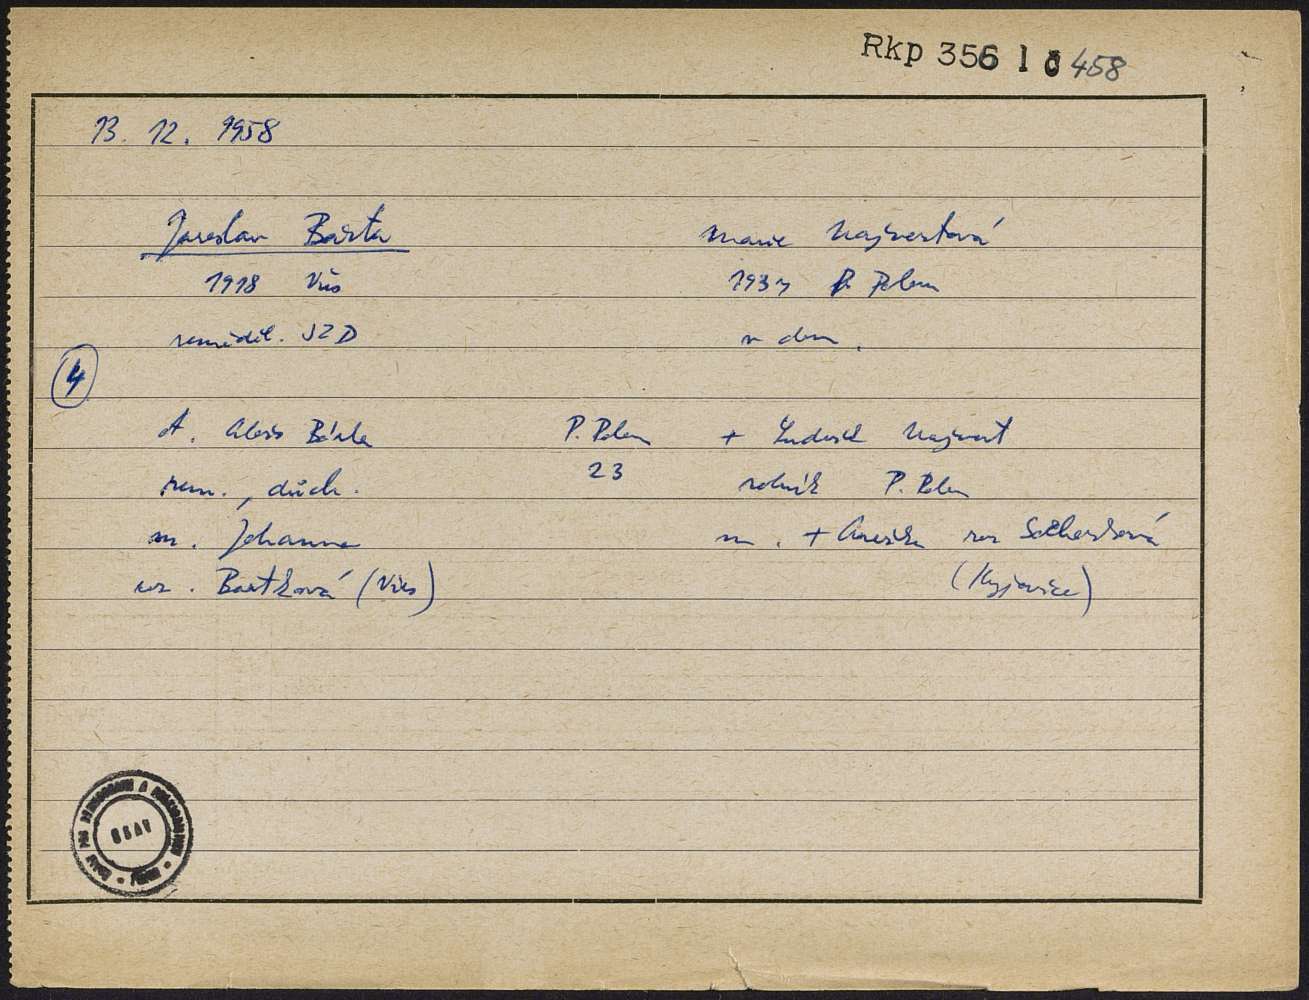 Rkp 356 1 6 458
13. 12. 1958
Jaroslav Bárta
Marie Najvertová
1918 Vís
1934 P. Polom
zeměděl. JZD
v dom.
4
ot. Alois Bárta
P. Polom
+ Ludvík Najvert
zem., důch.
23
rolník P. Polom
m. Johanna
m. + Anežka roz
roz. Bartková
(Kyjovice)